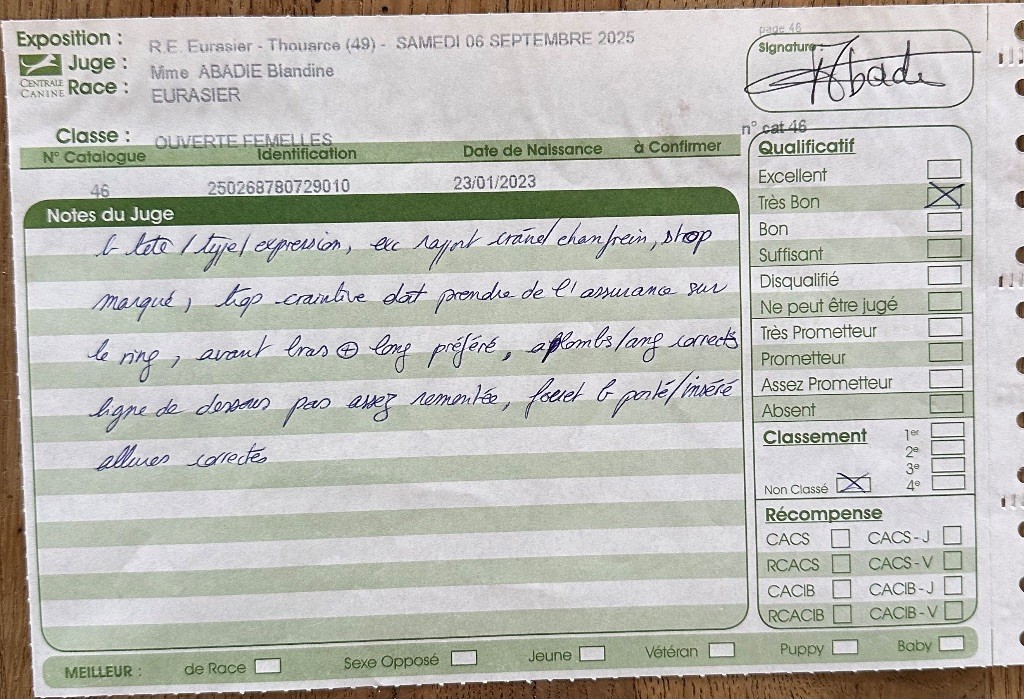 page 46
Exposition : R.E. Eurasier - Thouarce (49) - SAMEDI 06 SEPTEMBRE 2025
Signature :
Juge : Mme ABADIE Blandine
CENTRALE CANINE
Race : EURASIER
Abadie
Classe : OUVERTE FEMELLES
n° cat 46
N° Catalogue Identification Date de Naissance à Confirmer
46 250268780729010 23/01/2023
Notes du Juge
b tete / type / expression, exc rapport crâne / chanfrein, stop
marqué, trop craintive doit prendre de l'assurance sur
le ring, avant bras ⊕ long préféré, aplombs/ang corrects
ligne de dessous pas assez remontée, fouet b porté/inséré
allures correctes
Qualificatif
Excellent
Très Bon
Bon
Suffisant
Disqualifié
Ne peut être jugé
Très Prometteur
Prometteur
Assez Prometteur
Absent
Classement 1er
2e
3e
Non Classé 4e
Récompense
CACS CACS-J
RCACS CACS-V
CACIB CACIB-J
RCACIB CACIB-V
MEILLEUR : de Race Sexe Opposé Jeune Vétéran Puppy Baby